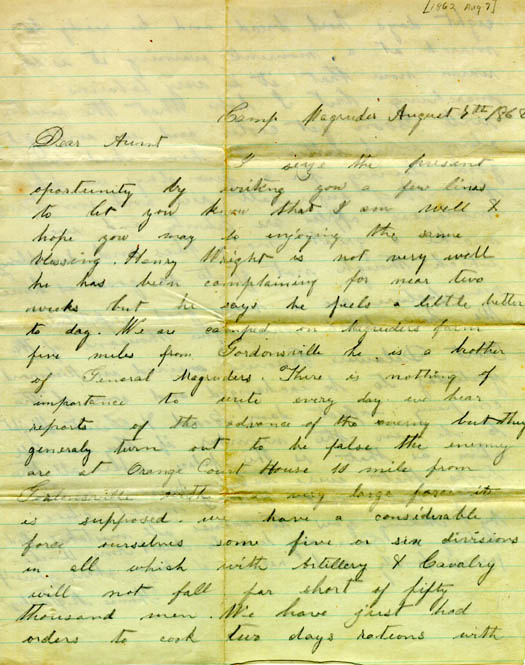 [1862 Aug 7]
Camp Magruder August 7th 1862
Dear Aunt
I seize the present
oportunity by writing you a few lines
to let you know that I am well &
hope you may be enjoying the same
blessing. Henry Wright is not very well
he has been complaining for near two
weeks but he says he feels a little better
to day. We are camped on Magruders farm
five miles from Gordonsville he is a brother
of General Magruders. There is nothing of
importance to write every day we hear
reports of the advance of the enemy but they
generaly turn out to be false the enemy
are at Orange Court House 10 mile from
Gordonsville with a very large force it
is supposed. we have a considirable
force ourselves some five or six divisions
in all which with Artillery & Cavalry
will not fall far short of fifty
thousand men. We have just had
orders to cook two days rations with